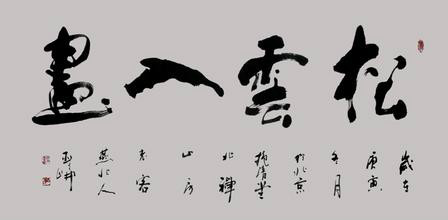 松雲入畫
歲在
庚寅
冬月
於北京
抱清堂
北禪
山房
老客
燕北人